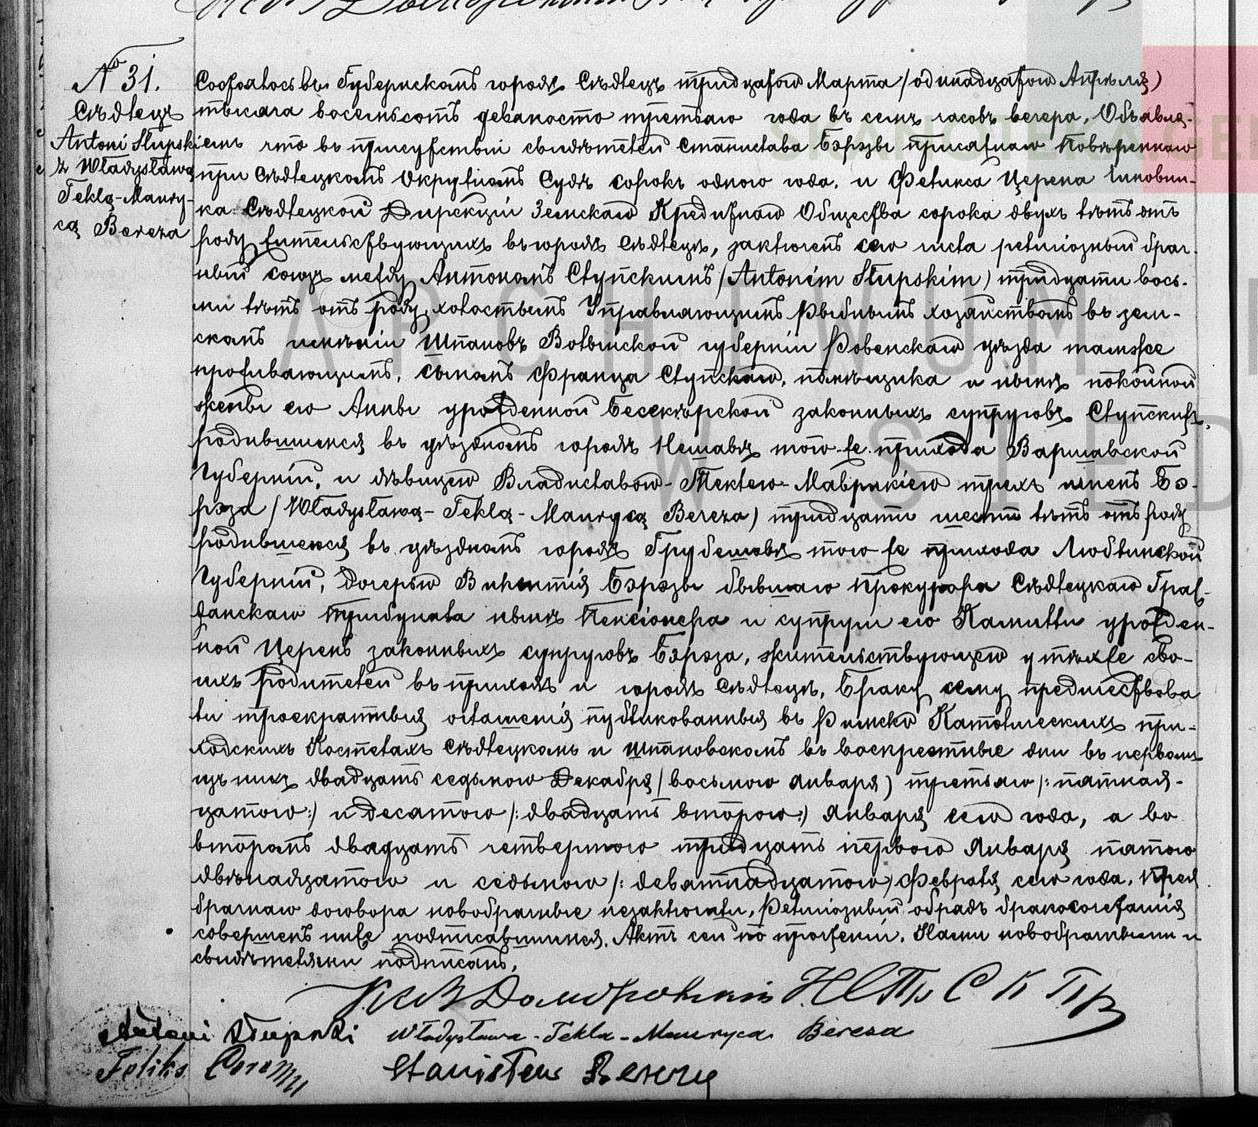 № 31.
Сѣдлецъ
Antoni Słupski
z Władysławą
Teklą-Maury-
cą Bereza
Состоялось въ Губернскомъ городѣ Сѣдлецъ тридцатаго Марта /одинадцатаго Апрѣля)
тысяча восемьсотъ девяносто третьяго года въ семь часовъ вечера. Объявля-
емъ что въ присутствіи свидѣтелей Станислава Бэрэзы присяжнаго Повѣреннаго
при Сѣдлецкомъ Окружномъ Судѣ сорокъ одного года, и Феликса Церена чиновни-
ка Сѣдлецкой Дирекціи Земскаго Кредитнаго Общества сорока двухъ лѣтъ отъ
роду жительствующихъ въ городѣ Сѣдлецъ, заключенъ сего числа религіозный брач-
ный союзъ между Антономъ Слупскимъ /Antonim Słupskim) тридцати вось-
ми лѣтъ отъ роду, холостымъ Управляющимъ Рыбнымъ хозяйствомъ въ зем-
скомъ имѣніи Шпановъ Волынской губерніи Ровенскаго уѣзда тамже
проживающимъ, сыномъ Франца Слупскаго, помѣщика и нынѣ покойной
жены его Анны урожденной Бесекерской законныхъ супруговъ Слупскихъ,
родившимся въ уѣздномъ городѣ Нешавѣ того-же прихода Варшавской
Губерніи, и дѣвицею Владиславою-Теклею-Маврикіею трехъ именъ Бэ-
рэза /Władysławą-Teklą-Maurycą Bereza) тридцати шести лѣтъ отъ роду
родившеюся въ уѣздномъ городѣ Грубешовѣ того-же прихода Люблинской
Губерніи, дочерью Викентія Бэрэзы бывшаго Прокурора Сѣдлецкаго Граж-
данскаго Трибунала нынѣ Пенсіонера и супруги его Камиллы урожден-
ной Церенъ законныхъ супруговъ Бэрэза, жительствующею у тѣхже сво-
ихъ родителей въ приходѣ и городѣ Сѣдлецъ. Браку сему предшествова
ли троекратныя оглашенія публикованныя въ Римско Католическихъ при-
ходскихъ Костелахъ Сѣдлецкомъ и Шпановскомъ въ воскрестные дни въ первом
изъ нихъ двадцать седьмого Декабря /восьмого Января) третьяго /:пятнад-
цатого:) и десятого /:двадцать второго:) Января сего года, а во
второмъ двадцать четвертого тридцать перваго Января пятого
двѣнадцатого и седьмого /:девятнадцатого) Февраля сего года. Пред
брачнаго договора новобрачные незаключили. Религіозный обрядъ бракосочетанія
совершенъ нижеподписавшимся. Актъ сей по прочтеніи, Нами новобрачными и
свидѣтелями подписанъ.
Antoni Słupski Władysława-Tekla-Mauryca Bereza
Feliks Stanisław Bereza